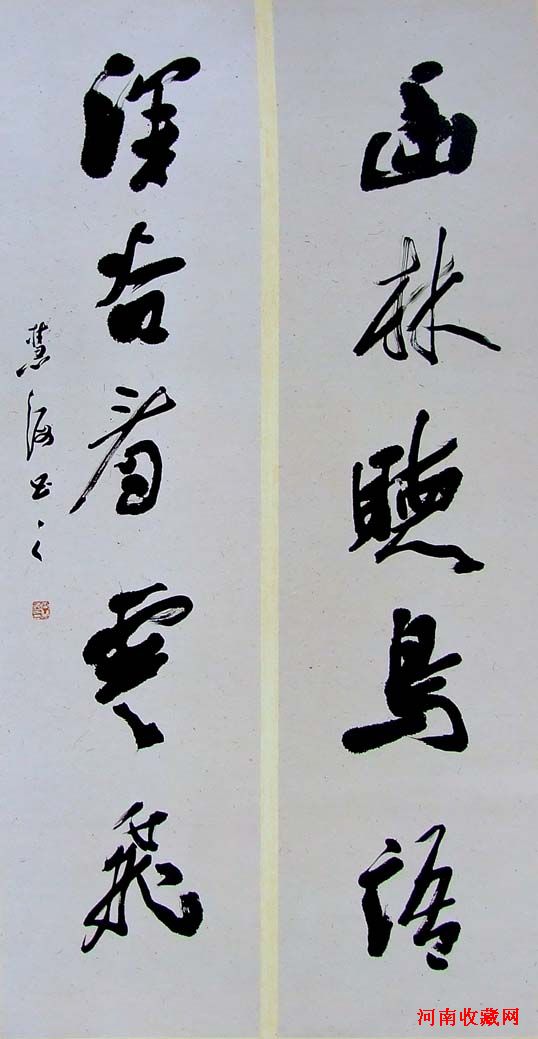 幽林聴鳥語
深谷看雲飛
慧海书之
河南收藏网